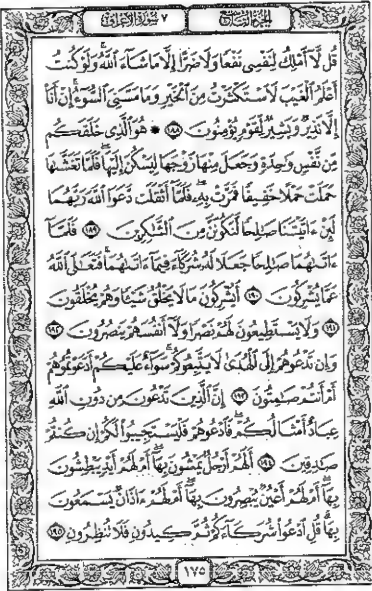 الجزء التاسع ٧ سورة الأعراف
قُل لَّا أَمْلِكُ لِنَفْسِى نَفْعًا وَلَا ضَرًّا إِلَّا مَا شَاءَ ٱللَّهُ وَلَوْ كُنتُ
أَعْلَمُ ٱلْغَيْبَ لَٱسْتَكْثَرْتُ مِنَ ٱلْخَيْرِ وَمَا مَسَّنِىَ ٱلسُّوءُ إِنْ أَنَا۠
إِلَّا نَذِيرٌ وَبَشِيرٌ لِّقَوْمٍ يُؤْمِنُونَ ١٨٨ ۞ هُوَ ٱلَّذِى خَلَقَكُم
مِّن نَّفْسٍ وَٰحِدَةٍ وَجَعَلَ مِنْهَا زَوْجَهَا لِيَسْكُنَ إِلَيْهَا فَلَمَّا تَغَشَّىٰهَا
حَمَلَتْ حَمْلًا خَفِيفًا فَمَرَّتْ بِهِۦ فَلَمَّا أَثْقَلَت دَّعَوَا ٱللَّهَ رَبَّهُمَا
لَئِنْ ءَاتَيْتَنَا صَٰلِحًا لَّنَكُونَنَّ مِنَ ٱلشَّٰكِرِينَ ١٨٩ فَلَمَّا
ءَاتَىٰهُمَا صَٰلِحًا جَعَلَا لَهُۥ شُرَكَاءَ فِيمَا ءَاتَىٰهُمَا فَتَعَٰلَى ٱللَّهُ
عَمَّا يُشْرِكُونَ ١٩٠ أَيُشْرِكُونَ مَا لَا يَخْلُقُ شَيْـًٔا وَهُمْ يُخْلَقُونَ
١٩١ وَلَا يَسْتَطِيعُونَ لَهُمْ نَصْرًا وَلَا أَنفُسَهُمْ يَنصُرُونَ ١٩٢
وَإِن تَدْعُوهُمْ إِلَى ٱلْهُدَىٰ لَا يَتَّبِعُوكُمْ سَوَاءٌ عَلَيْكُمْ أَدَعَوْتُمُوهُمْ
أَمْ أَنتُمْ صَٰمِتُونَ ١٩٣ إِنَّ ٱلَّذِينَ تَدْعُونَ مِن دُونِ ٱللَّهِ
عِبَادٌ أَمْثَالُكُمْ فَٱدْعُوهُمْ فَلْيَسْتَجِيبُوا۟ لَكُمْ إِن كُنتُمْ
صَٰدِقِينَ ١٩٤ أَلَهُمْ أَرْجُلٌ يَمْشُونَ بِهَا أَمْ لَهُمْ أَيْدٍ يَبْطِشُونَ
بِهَا أَمْ لَهُمْ أَعْيُنٌ يُبْصِرُونَ بِهَا أَمْ لَهُمْ ءَاذَانٌ يَسْمَعُونَ
بِهَا قُلِ ٱدْعُوا۟ شُرَكَاءَكُمْ ثُمَّ كِيدُونِ فَلَا تُنظِرُونِ ١٩٥
١٧٥